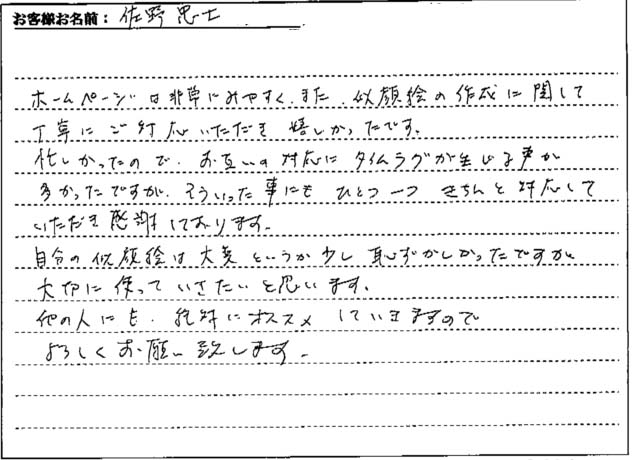 お客様お名前：佐野忠士
ホームページは非常にみやすく、また、似顔絵の作成に関して
丁寧にご対応いただき嬉しかったです。
忙しかったので、お互いの対応にタイムラグが生じる事が
多かったですが、そういった事にも ひとつ一つ きちんと対応して
いただき感謝しております。
自分の似顔絵は大変というか少し恥ずかしかったですが
大切に使っていきたいと思います。
他の人にも、絶対にオススメしていきますので
よろしくお願い致します。